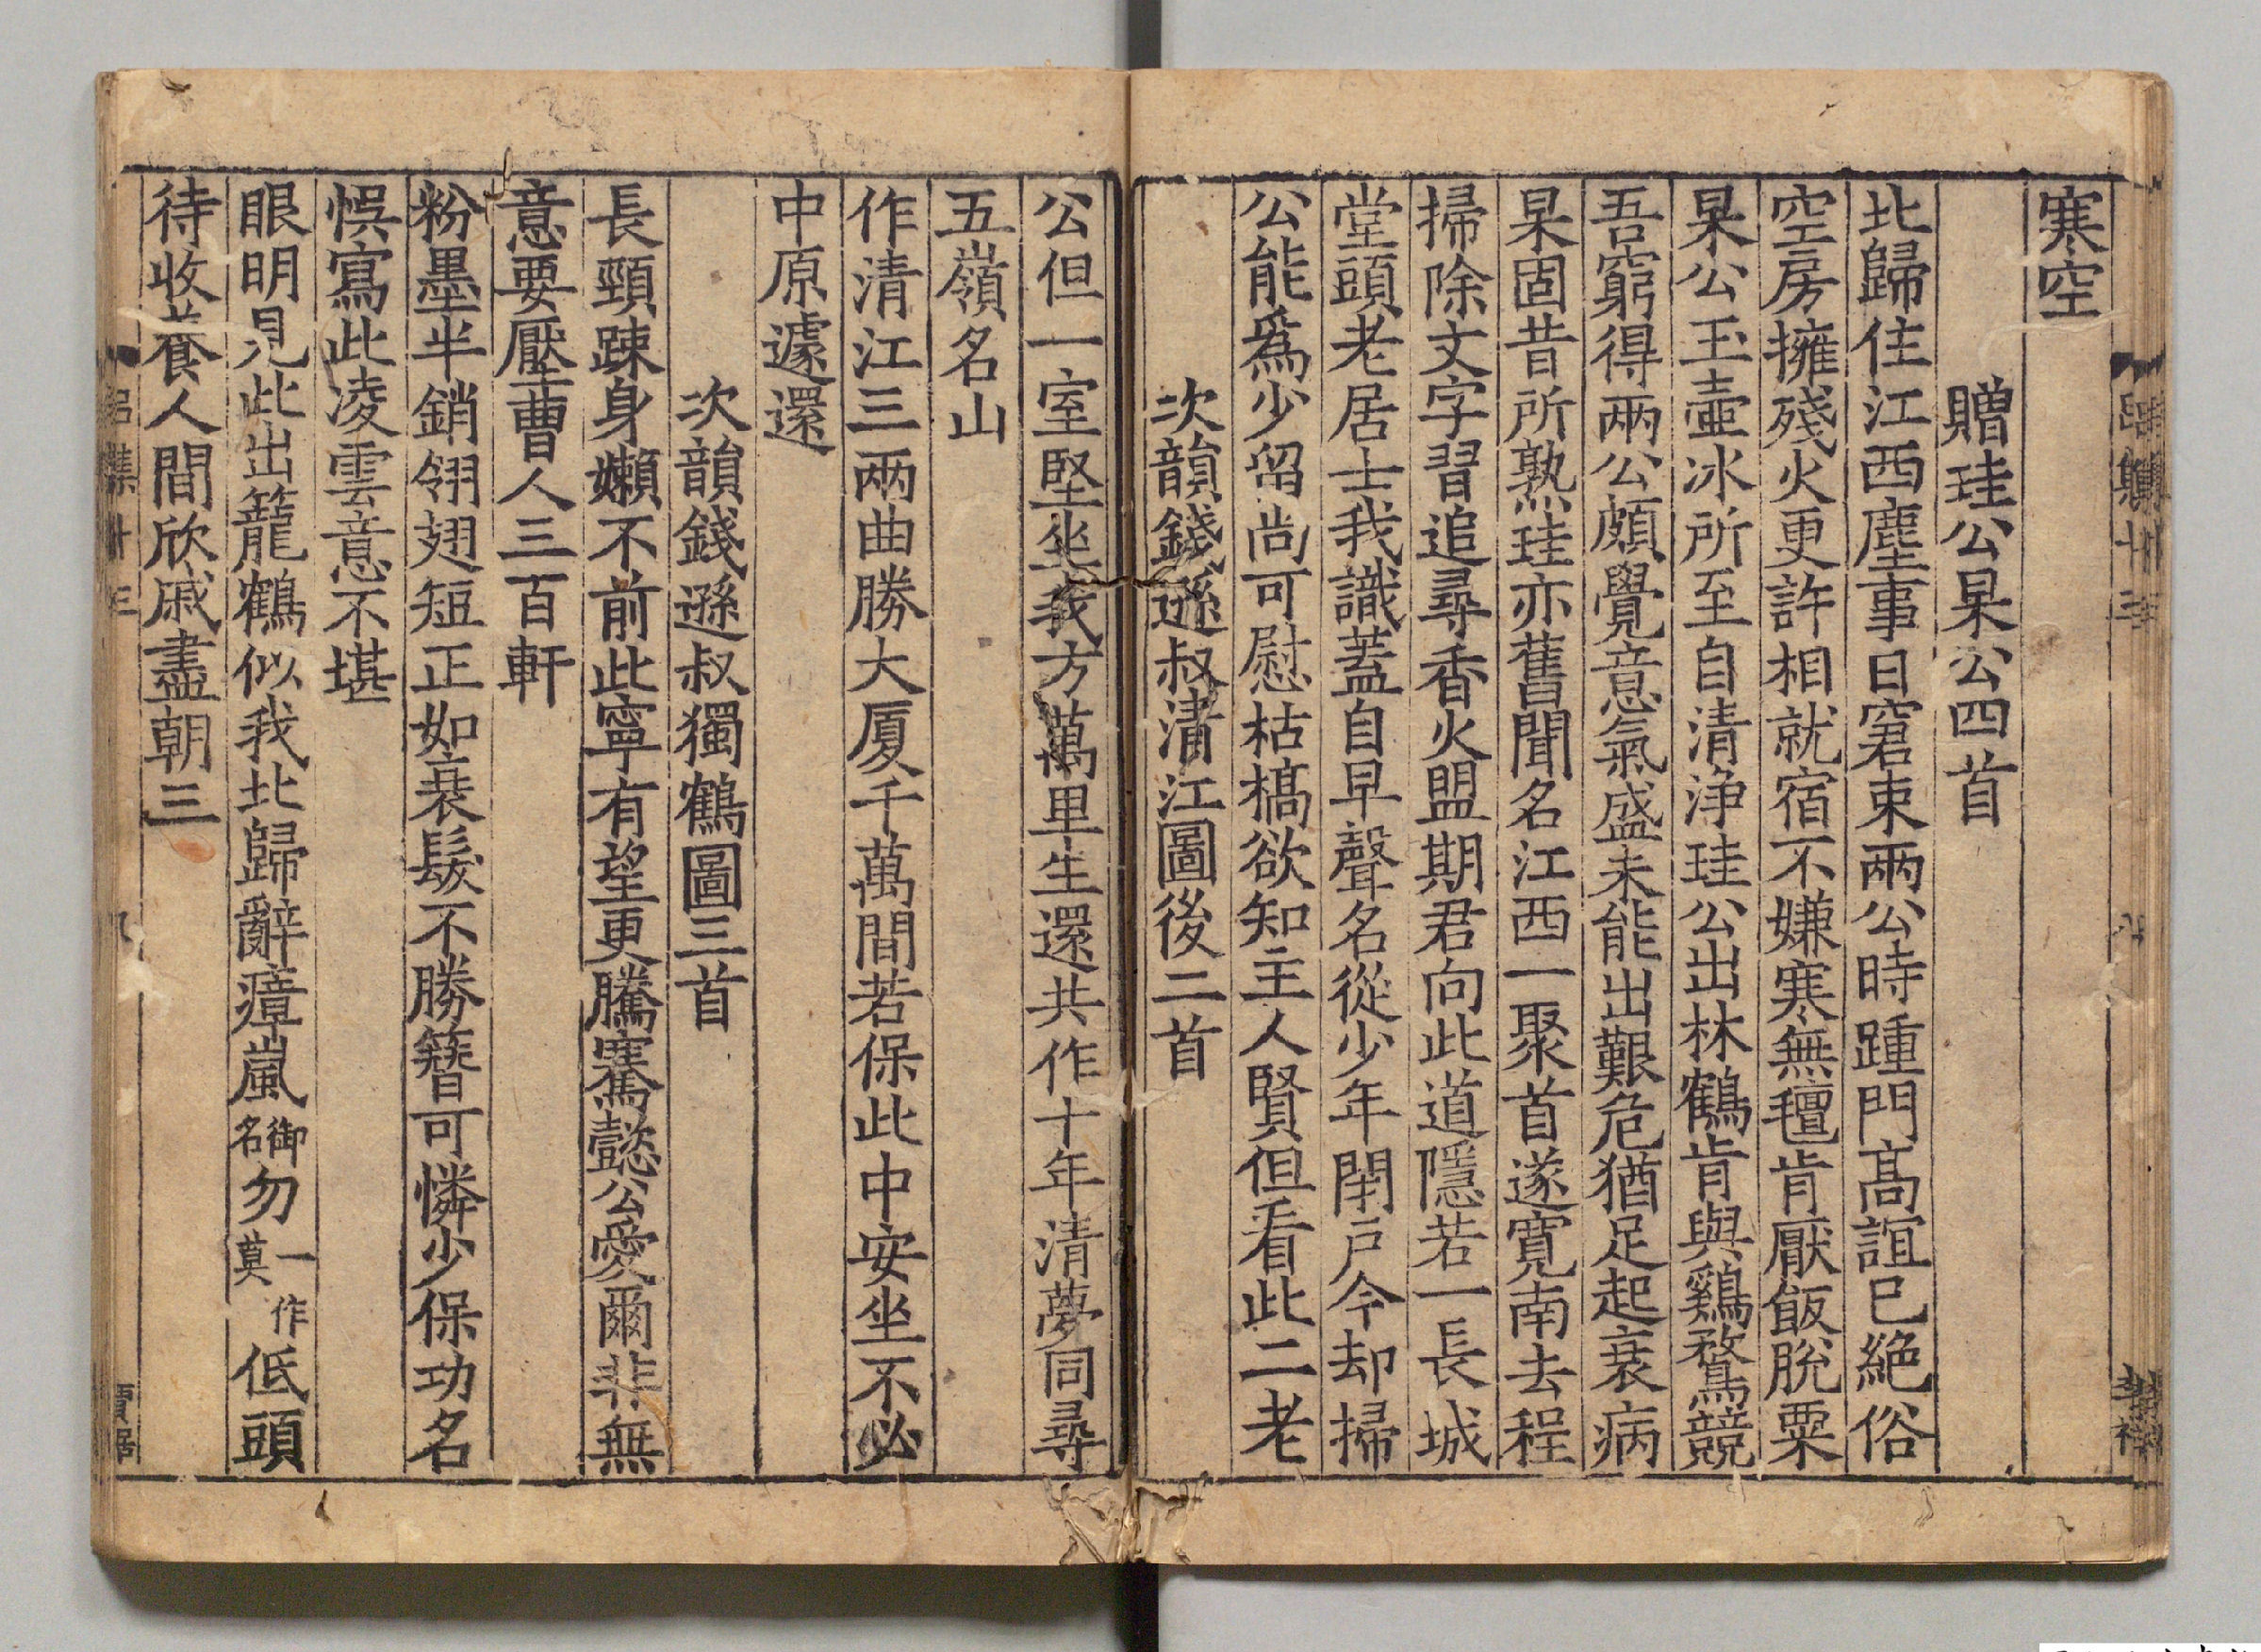 寒空
贈珪公杲公四首
北歸住江西塵事日窘束兩公時踵門高誼已絕俗
空房擁殘火更許相就宿不嫌寒無氊肯厭飯脫粟
杲公玉壺冰所至自清淨珪公出林鶴肯與鷄鶩競
吾窮得兩公頗覺意氣盛未能出艱危猶足起衰病
杲固昔所熟珪亦舊聞名江西一聚首遂寬南去程
掃除文字習追尋香火盟期君向此道隱若一長城
堂頭老居士我識蓋自早聲名從少年閉戶今却掃
公能爲少留尚可慰枯槁欲知主人賢但看此二老
次韻錢遜叔清江圖後二首
公但一室堅坐我方萬里生還共作十年清夢同尋
五嶺名山
作清江三兩曲勝大厦千萬間若保此中安坐不必
中原遽還
次韻錢遜叔獨鶴圖三首
長頸踈身嬾不前此寧有望更騰騫懿公愛爾非無
意要壓曹人三百軒
粉墨半銷翎翅短正如衰髮不勝簪可憐少保功名
悞寫此凌雲意不堪
眼明見此出籠鶴似我北歸辭瘴嵐御名勿一作莫低頭
待收養人間欣戚盡朝三